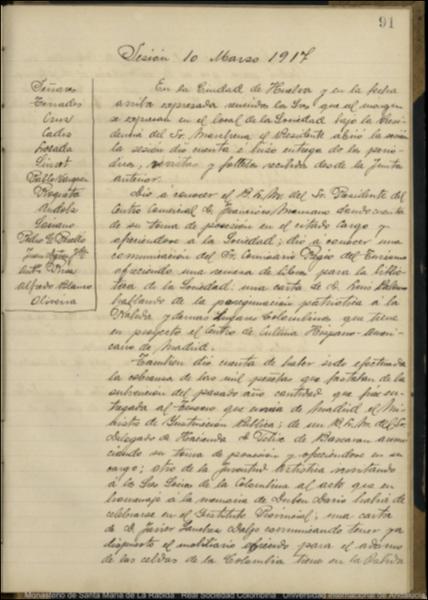 91
Sesión 10 Marzo 1917
Señores
Terrades
Cruz
Cádiz
Losada
Pablo Vazquez
Oliveira
En la Ciudad de Huelva y en la fecha
arriba expresada reunidos los Sres que al margen
se expresan en el local de la Sociedad bajo la Presi-
dencia del Sr. el Presidente abrió la sesión
la sesión dió cuenta é hizo entrega de los perió-
dicos, revistas y folletos recibidos desde la Junta
anterior.
Dió á conocer el B. L. M. del Sr. Presidente del
Centro Comercial D. Francisco dando cuenta
de su toma de posesión en el citado cargo y
ofreciendose á la Sociedad; dió á conocer una
comunicación del Sr. Comisario Regio del Turismo
ofreciendo una remesa de libros para la biblio-
teca de la Sociedad, una carta de D.
hablando de la peregrinación patriótica á la
Rabida y demas lugares Colombinos que tiene
en proyecto el Centro de Cultura Hispano-Ameri-
cano de Madrid.
Tambien dió cuenta de haber sido efectuada
la cobranza de las mil pesetas que faltaban de la
subvención del pasado año cantidad que fué en-
tregada al Tesorero que de Madrid el Mi-
nisterio de Instrucción Pública; de un B. L. M. del Sr.
Delegado de Hacienda D. Felix de Bascaran anun-
ciando su toma de posesión y ofreciendose en su
cargo; otro de la Juventud Artistica invitando
á los Sres Socios de la Colombina al acto que en
homenaje á la memoria de Ruben Dario habia de
celebrarse en el Instituto Provincial; una carta
de D. Javier comunicando tener ya
dispuesto el mobiliario ofrecido para el adorno
de las celdas de la Colombina tiene en la Rabida
Monasterio de Santa María de La Rábida - Real Sociedad Colombina - Universidad Internacional de Andalucía